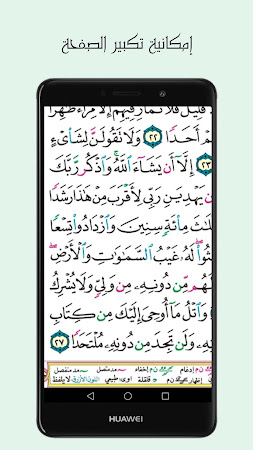 إمكانية تكبير الصفحة
قَلِيلٌ فَلَا تُمَارِ فِيهِمْ إِلَّا مِرَآءً ظَٰهِرًا
هُمْ أَحَدًا ٢٢ وَلَا تَقُولَنَّ لِشَا۟ىْءٍ
٢٣ إِلَّآ أَن يَشَآءَ ٱللَّهُ وَٱذْكُر رَّبَّكَ
أَن يَهْدِيَنِ رَبِّى لِأَقْرَبَ مِنْ هَٰذَا رَشَدًا
ثَلَٰثَ مِا۟ئَةٍ سِنِينَ وَٱزْدَادُوا۟ تِسْعًا
لَبِثُوا۟ لَهُۥ غَيْبُ ٱلسَّمَٰوَٰتِ وَٱلْأَرْضِ
لَهُم مِّن دُونِهِۦ مِن وَلِىٍّ وَلَا يُشْرِكُ
وَٱتْلُ مَآ أُوحِىَ إِلَيْكَ مِن كِتَابِ
وَلَن تَجِدَ مِن دُونِهِۦ مُلْتَحَدًا ٢٧
ن م إدغام ن م إخفاء مد متصل مد منفصل
ن م إظهار قلقلة اوى طبيعي اللون الأزرق لا يلفظ
HUAWEI